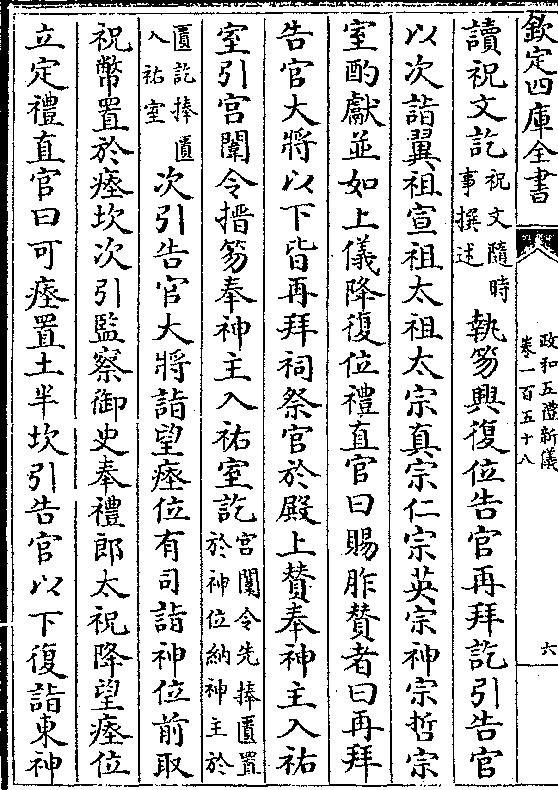 欽定四庫全書
政和五禮新儀
卷一百五十八
六
讀祝文訖祝文隨時事撰述執笏興復位告官再拜訖引告官
以次詣翼祖宣祖太祖太宗真宗仁宗英宗神宗哲宗
室酌獻並如上儀降復位禮直官曰賜胙贊者曰再拜
告官大將以下皆再拜祠祭官於殿上贊奉神主入祐
室引宮闈令搢笏奉神主入祐室訖宮闈令先捧匱置於神位納神主於
匱訖捧匱入祐室次引告官大將詣望瘞位有司詣神位前取
祝幣置於瘞坎次引監察御史奉禮郎太祝降望瘞位
立定禮直官曰可瘞置土半坎引告官以下復詣東神